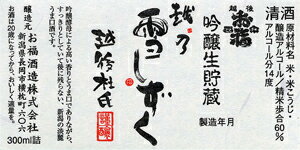 越後
お福
清酒
原材料名 米・米こうじ・
醸造アルコール/精米歩合60%
アルコール分14度
吟醸生貯蔵
製造年月
越乃
雪しずく
越後杜氏
吟醸酵母による高い香りとうま口でありながら、
すっきりとしていて後に残らない、新潟の淡麗
うま口酒です。
醸造元 お福酒造株式会社
新潟県長岡市横枕町六〇六
お酒は20歳になってから。おいしく適量を。
300ml詰